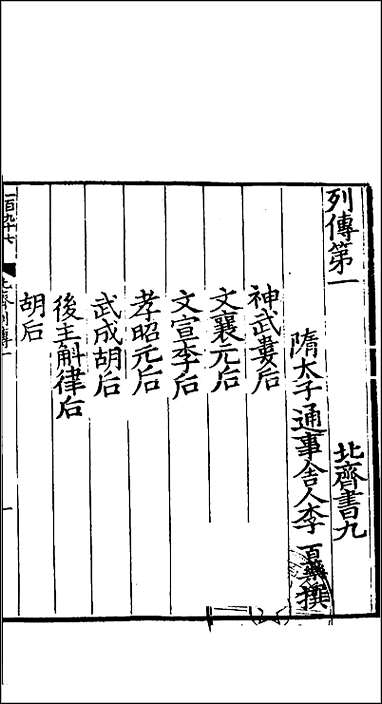 列傳第一　北齊書九
隋太子通事舍人李百藥撰
神武婁后
文襄元后
文宣李后
孝昭元后
武成胡后
後主斛律后
胡后
一百九十七　北齊列傳一　一